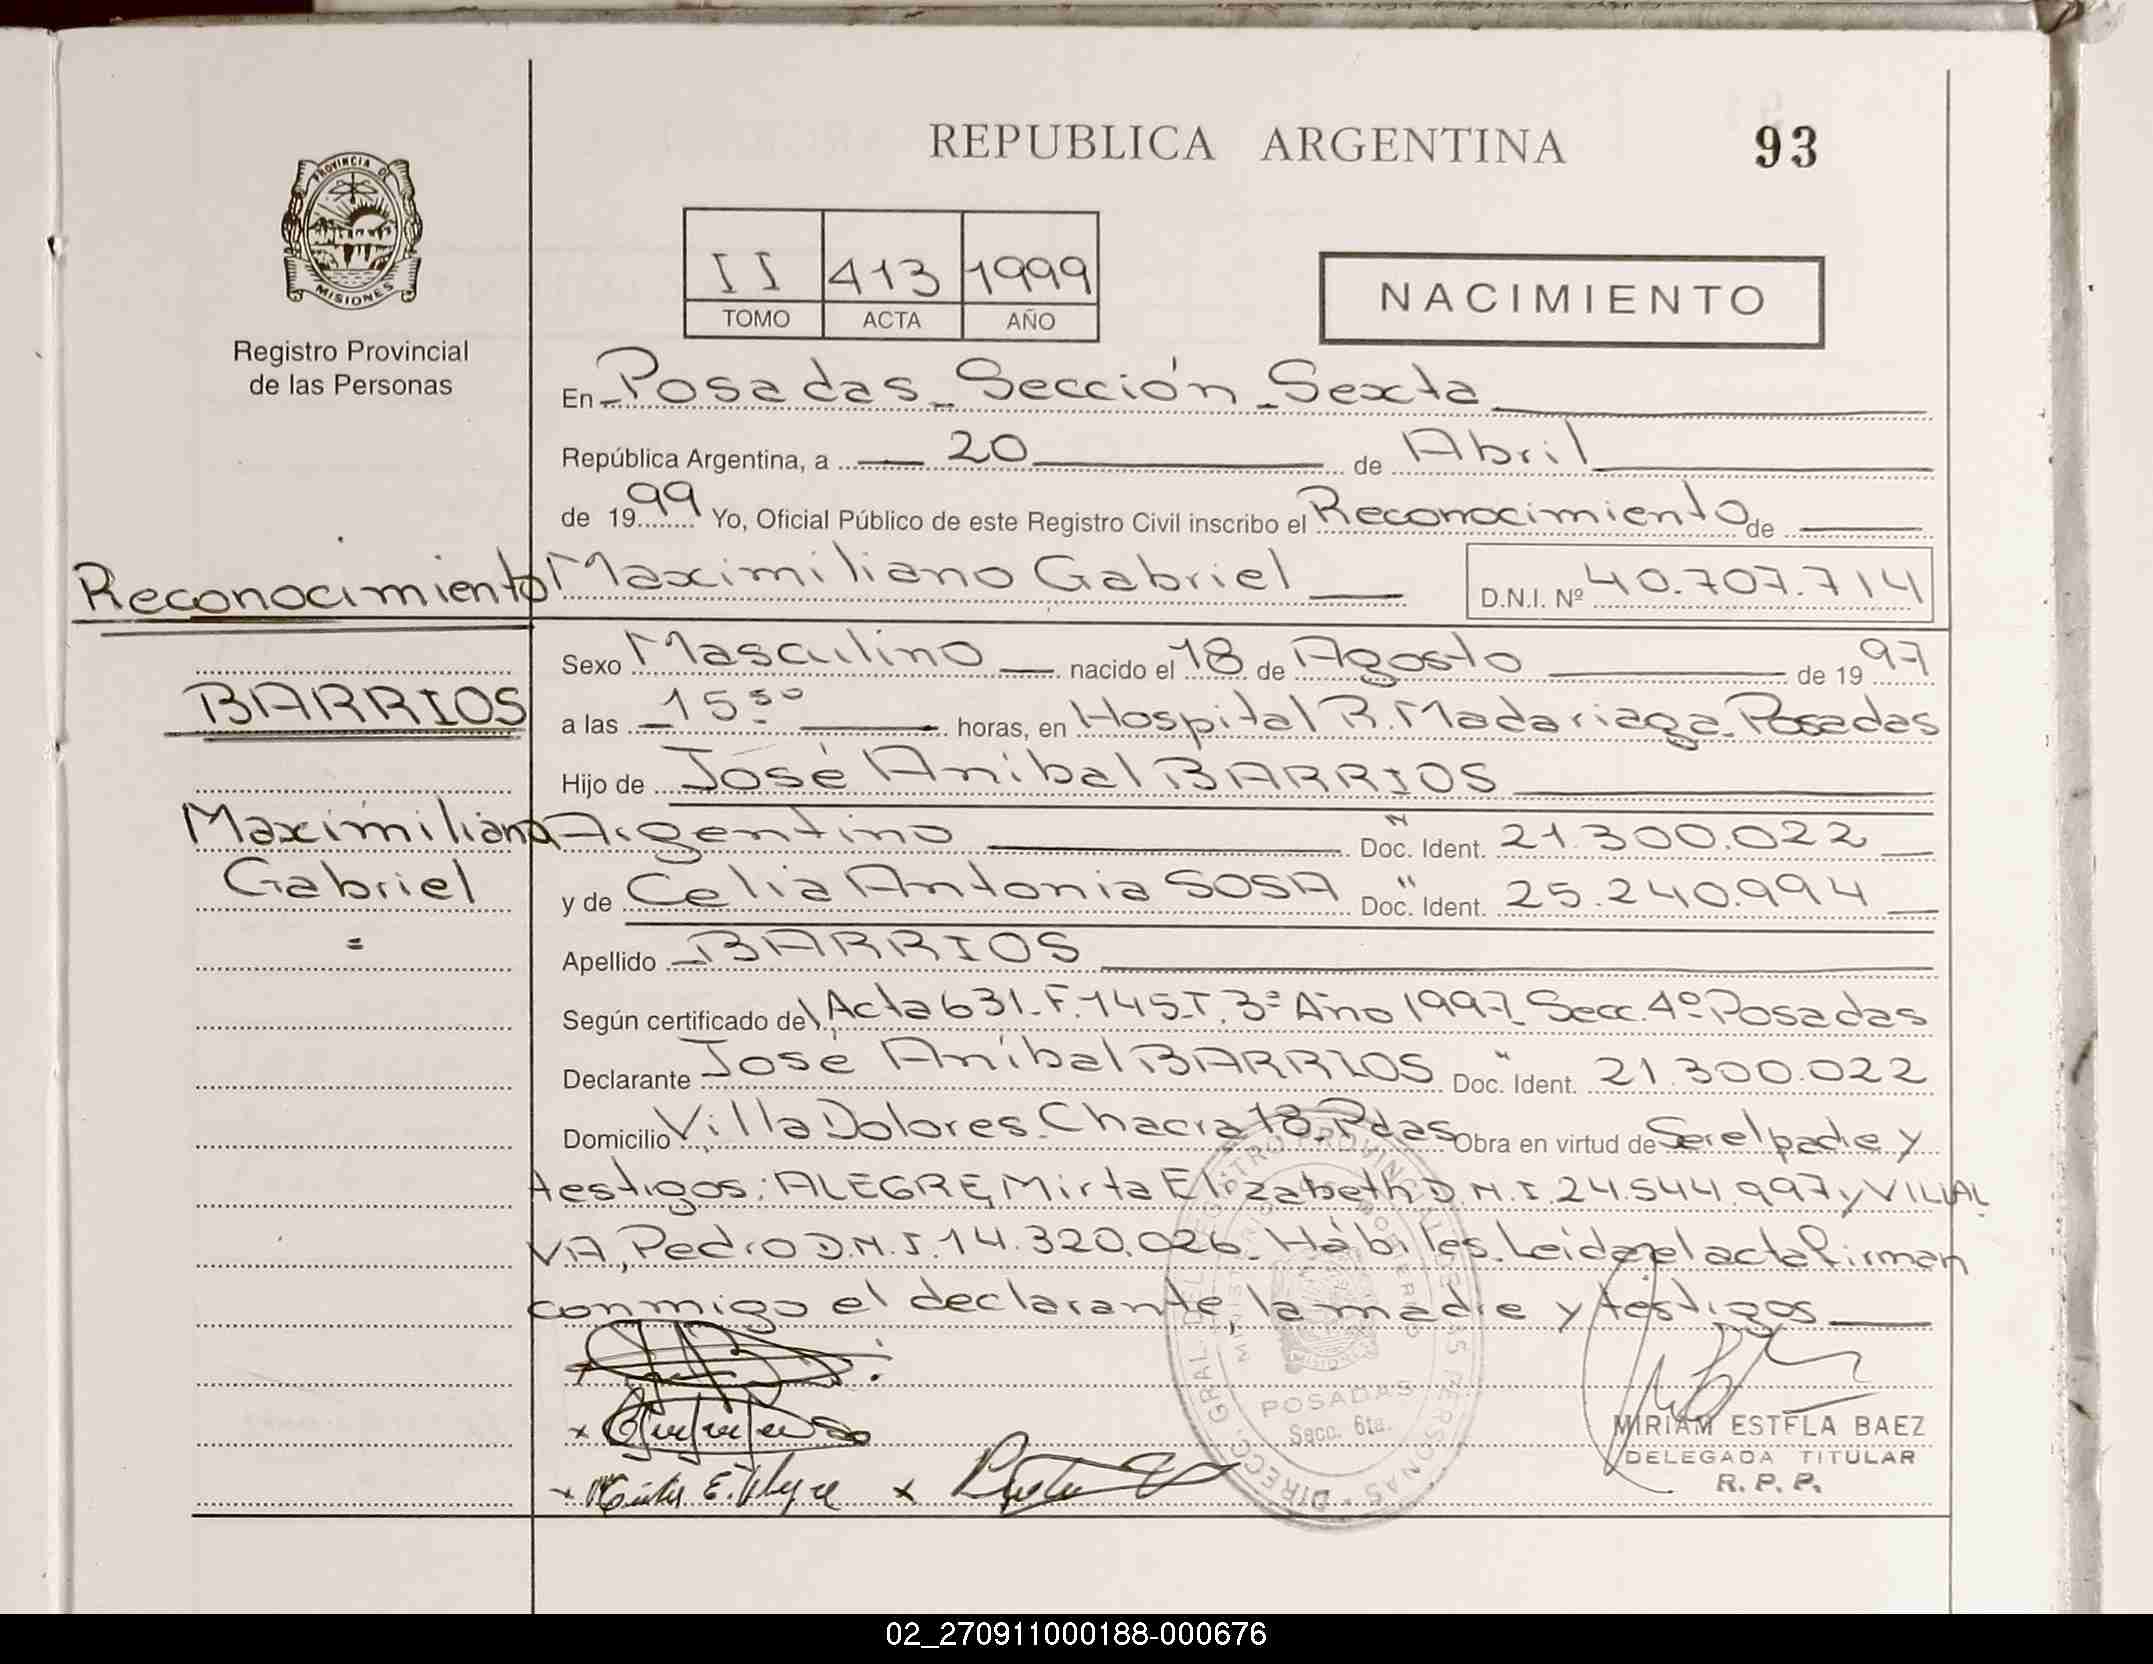 REPUBLICA ARGENTINA
93
PROVINCIA DE
MISIONES
Registro Provincial
de las Personas
II 413 1999
TOMO ACTA AÑO
NACIMIENTO
En Posadas - Sección - Sexta
República Argentina, a 20 de Abril
de 1999 Yo, Oficial Público de este Registro Civil inscribo el Reconocimiento de
Reconocimiento
Maximiliano Gabriel D.N.I. Nº 40.707.714
Sexo Masculino nacido el 18 de Agosto de 1997
BARRIOS
a las 15 50 horas, en Hospital R. Madariaga - Posadas
Hijo de José Anibal BARRIOS
Maximiliano
Argentino Doc. Ident. 21.300.022
Gabriel
y de Celia Antonia SOSA Doc. Ident. 25.240.994
Apellido BARRIOS
Según certificado del Acta 631 - F. 145 - T. 3º Año 1997 - Secc. 4º Posadas
Declarante José Aníbal BARRIOS Doc. Ident. 21.300.022
Domicilio Villa Dolores - Chacra 18 - Pdas Obra en virtud de Ser el padre y
testigos: ALEGRE, Mirta Elizabeth D.N.I. 24.544.997 y VILLAL
VA, Pedro D.N.I. 14.320.026 - Hábiles - Leida el acta firman
conmigo el declarante, la madre y testigos
POSADAS
Secc. 6ta.
MIRIAM ESTELA BAEZ
DELEGADA TITULAR
R. P. P.
02_270911000188-000676